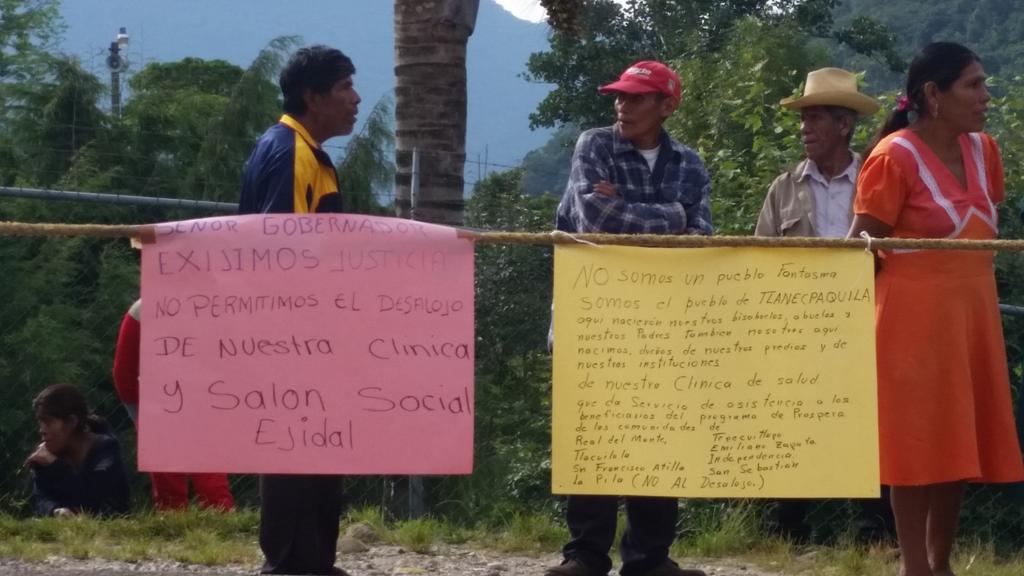 SEÑOR GOBERNADOR
EXIJIMOS JUSTICIA
NO PERMITIMOS EL DESALOJO
DE Nuestra Clinica
y Salon Social
Ejidal
NO somos un pueblo Fantasma
somos el pueblo de TLANECPAQUILA
aqui nacieron nuestros bisabuelos, abuelos y
nuestros Padres tambien nosotros aqui
nacimos, dueños de nuestros predios y de
nuestras instituciones
de nuestra Clinica de salud
que da Servicio de asistencia a los
beneficiarios del programa de Prospera
de las comunidades de
Real del Monte,
Tlacuilola
Sn Francisco Atitla
La Pila (NO AL Desalojo.)
Tepecuitlapa
Emiliano Zapata
Independencia
San Sebastian